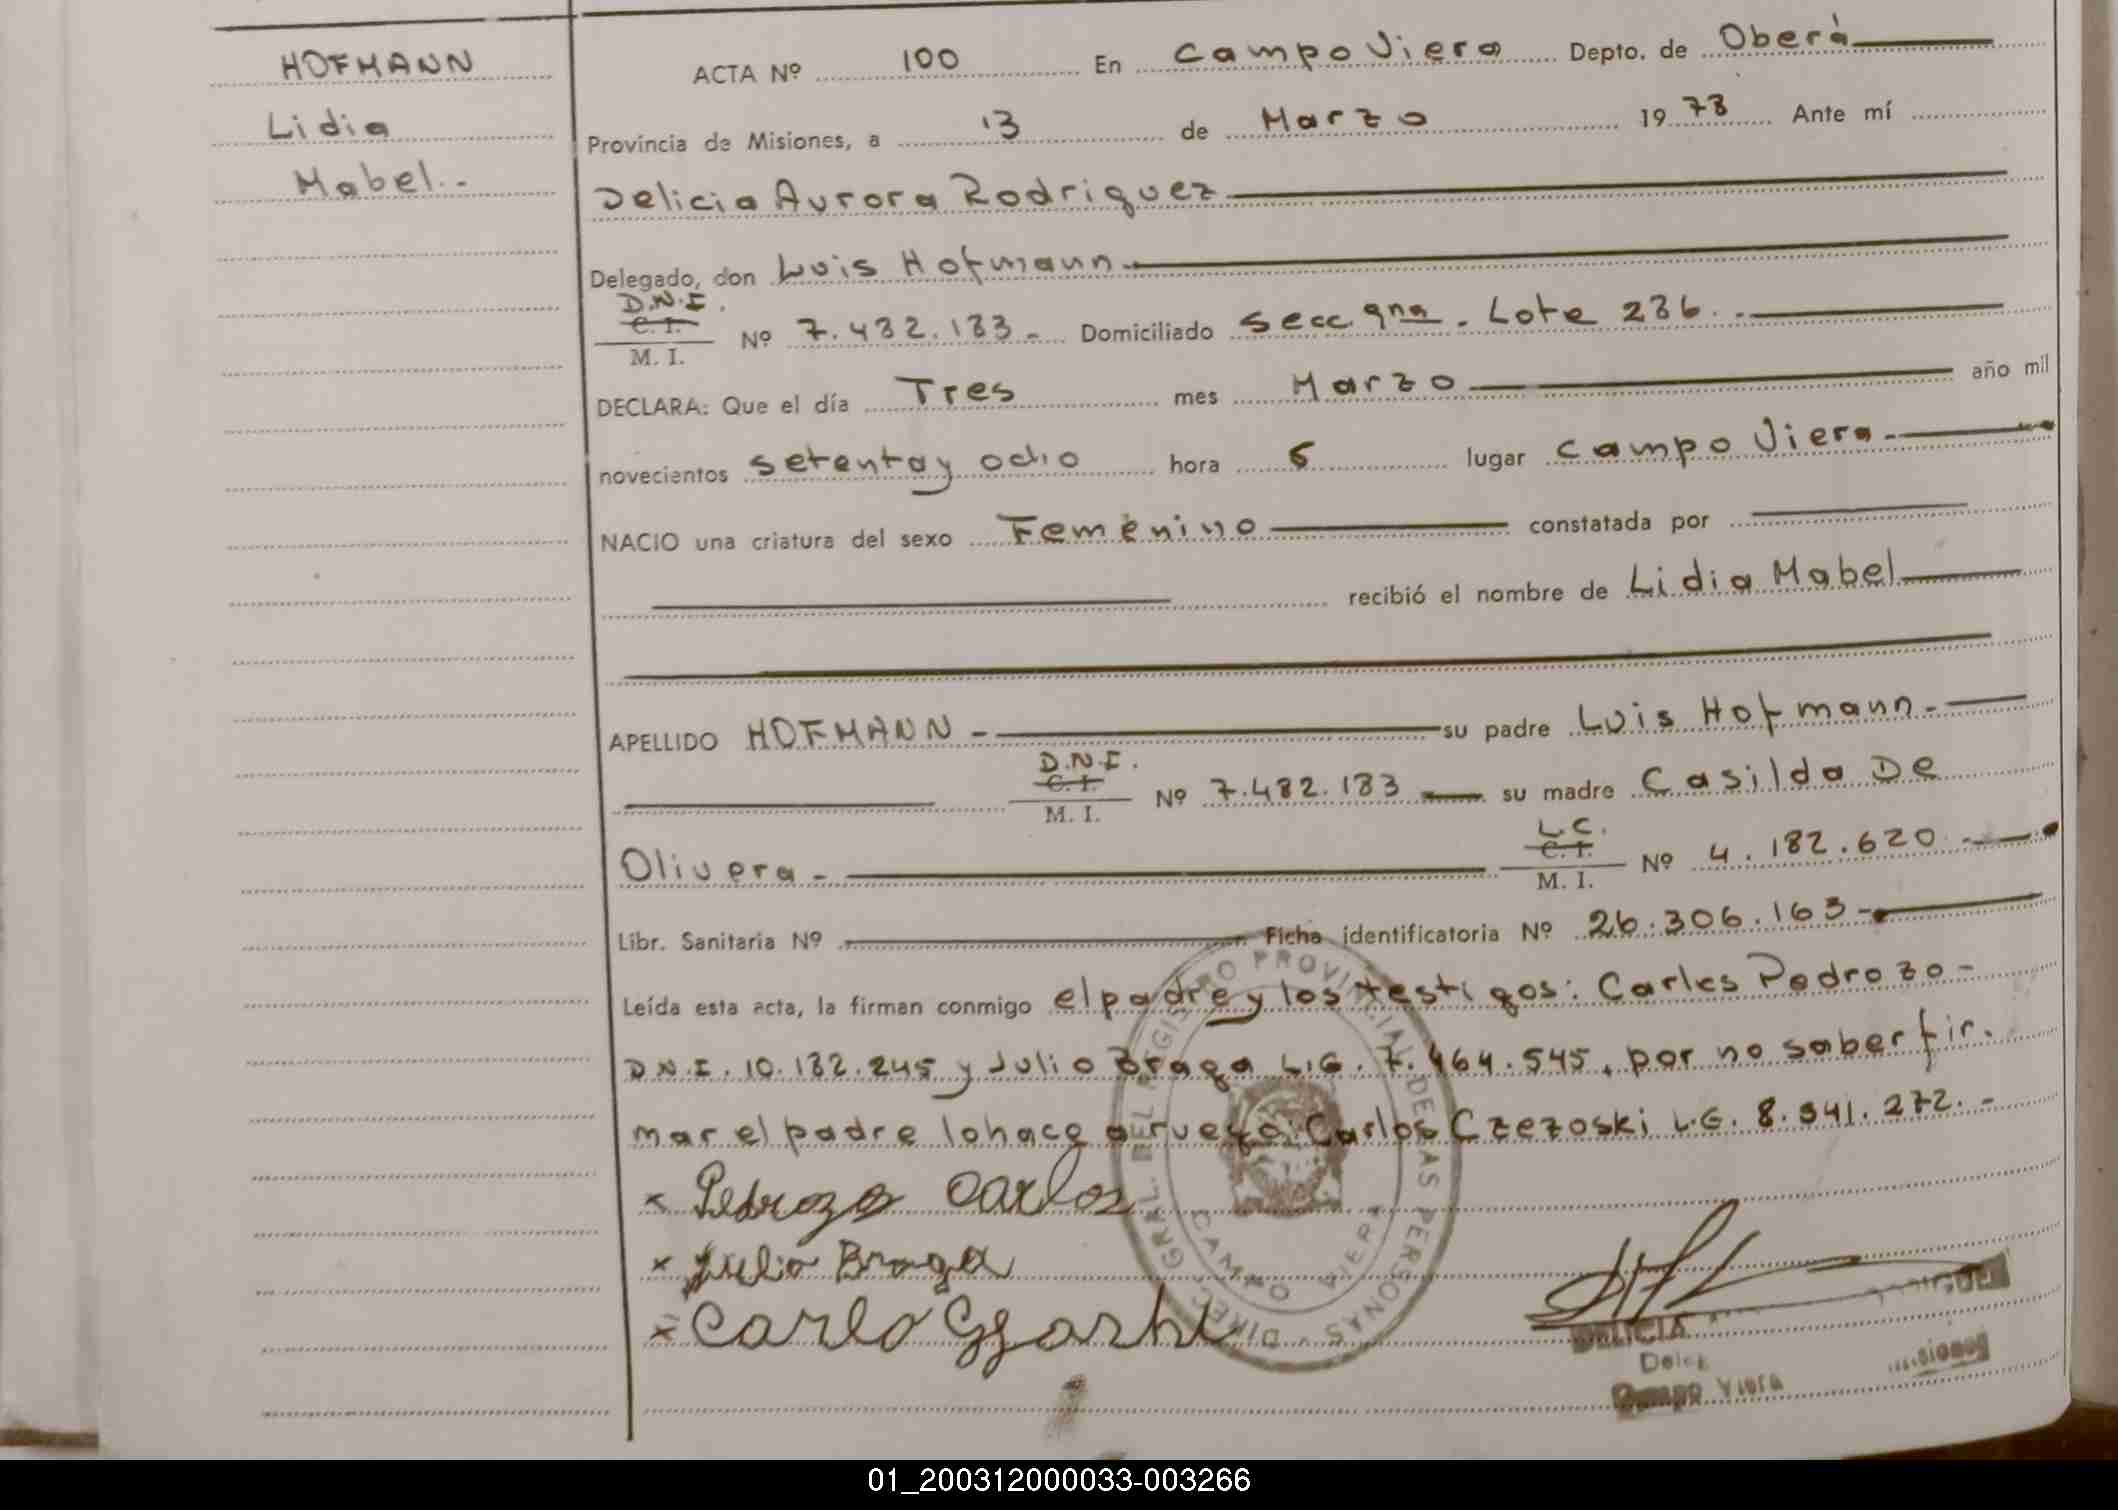 HOFMANN
Lidia
Mabel.-
ACTA Nº 100 En Campo Viera Depto. de Oberá
Provincia de Misiones, a 13 de Marzo 1978 Ante mí
Delicia Aurora Rodriguez
Delegado, don Luis Hofmann
D.N.I.
C. I.
M. I. Nº 7.482.183.- Domiciliado Secc 9na. Lote 236.-
DECLARA: Que el día Tres mes Marzo año mil
novecientos setenta y ocho hora 5 lugar Campo Viera.-
NACIO una criatura del sexo Femenino constatada por
recibió el nombre de Lidia Mabel
APELLIDO HOFMANN - su padre Luis Hofmann.-
D.N.I.
C. I.
M. I. Nº 7.482.183 su madre Casilda De
L.C.
C. I.
Olivera.- M. I. Nº 4.182.620.-
Libr. Sanitaria Nº Ficha identificatoria Nº 26.306.163-
Leída esta acta, la firman conmigo el padre y los testigos: Carlos Pedrozo-
D.N.I. 10.182.245 y Julio Braga L.E. 7.464.545, por no saber fir.
mar el padre lo hace a ruego: Carlos Czezoski L.E. 8.541.272.-
x Pedrozo Carlos
x Julio Braga
x Carlo
DIREC. GRAL. DEL REGISTRO PROVINCIAL DE LAS PERSONAS
CAMPO VIERA
DELICIA
Campo Viera
01_200312000033-003266